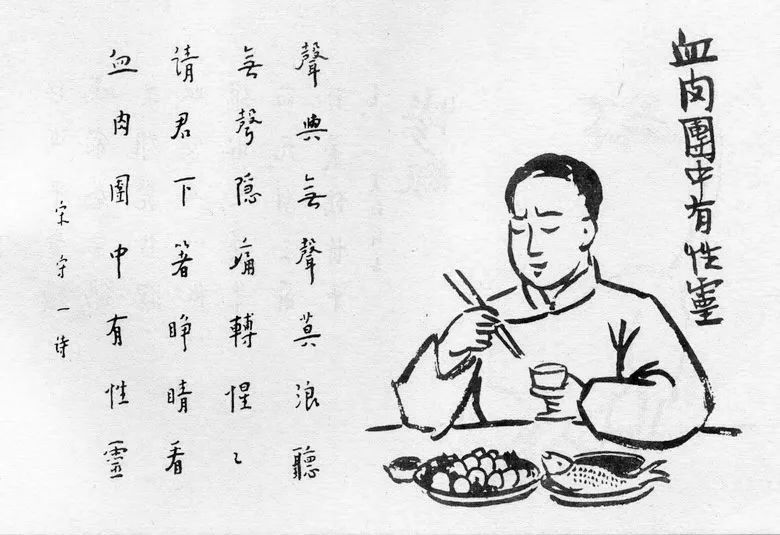 血肉團中有性靈
聲與無聲莫浪聽
無聲隱痛轉惺〻
請君下箸睜睛看
血肉團中有性靈
宋守一詩